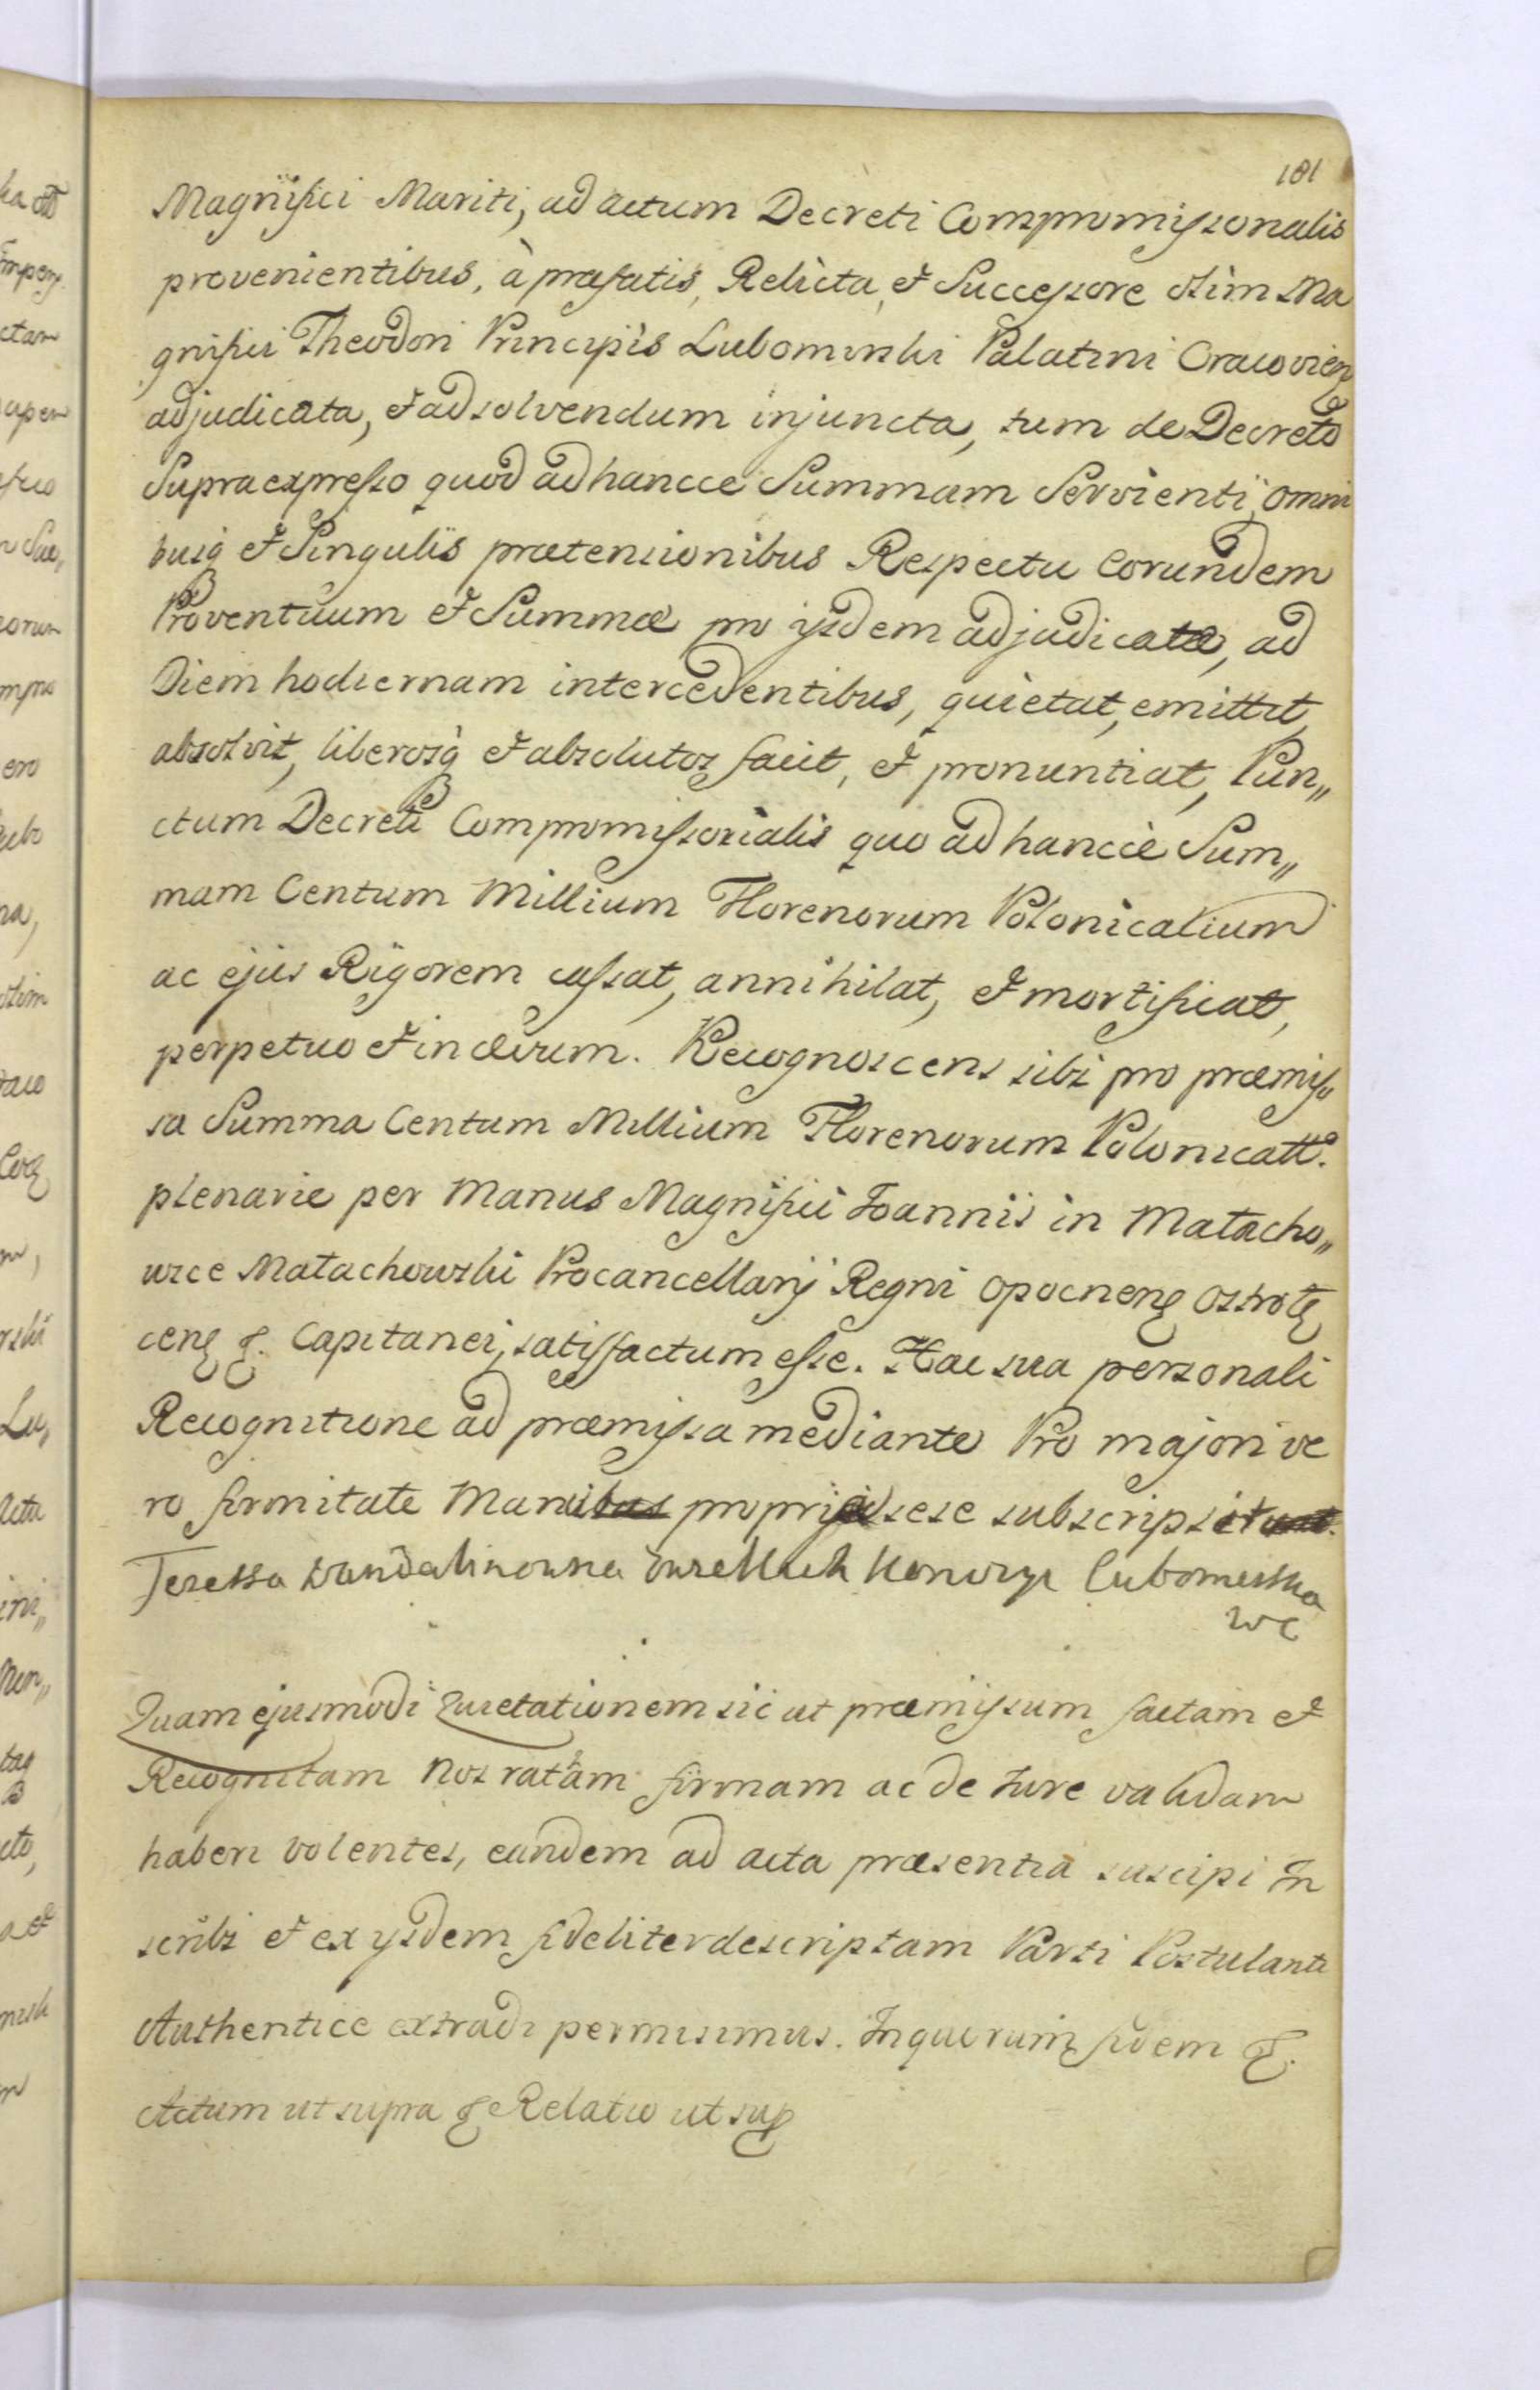 181
Magnifici Mariti, ad actum Decreti Compromissorialis
provenientibus, à præfatis, Relicta, et Successore olim Ma
gnifici Theodori Principis Lubomirski Palatini Cracovien
adjudicata, et ad solvendum injuncta, tum de Decreto
Supra expresso quod ad hancce Summam Servienti, omni
busq et Singulis prætensionibus Respectu Eorundem
Proventuum et Summæ pro ijsdem adjudicatæ, ad
Diem hodiernam intercedentibus, quietat, emittit,
absolvit, liberosq et absolutos facit, et pronuntiat, Pun„
ctum Decreti Compromissorialis quo ad hancce Sum„
mam Centum Millium Florenorum Polonicalium
ac ejus Rigorem cassat, annihilat, et mortificat,
perpetuo et in ævum. Recognoscens sibi pro præmis
sa Summa Centum Millium Florenorum Polonicall.
plenarie per Manus Magnifici Joannis in Małacho„
wice Małachowski Procancellarij Regni Opocnen Ostroł
cen &. Capitanei, satisfactum esse. Hac sua personali
Recognitione ad præmissa mediante Pro majori ve
ro firmitate Manu propria sese subscripsit.
Teressa Lubomirska
WC
Quam ejusmodi Quietationem sic ut præmissum factam et
Recognitam Nos ratam firmam ac de Jure validam
haberi volentes, eandem ad acta præsentia suscipi In
scribi et ex ijsdem fideliter descriptam Parti Postulanti
Authentice extradi permisimus. In quorum fidem &.
Actum ut supra & Relatio ut sup